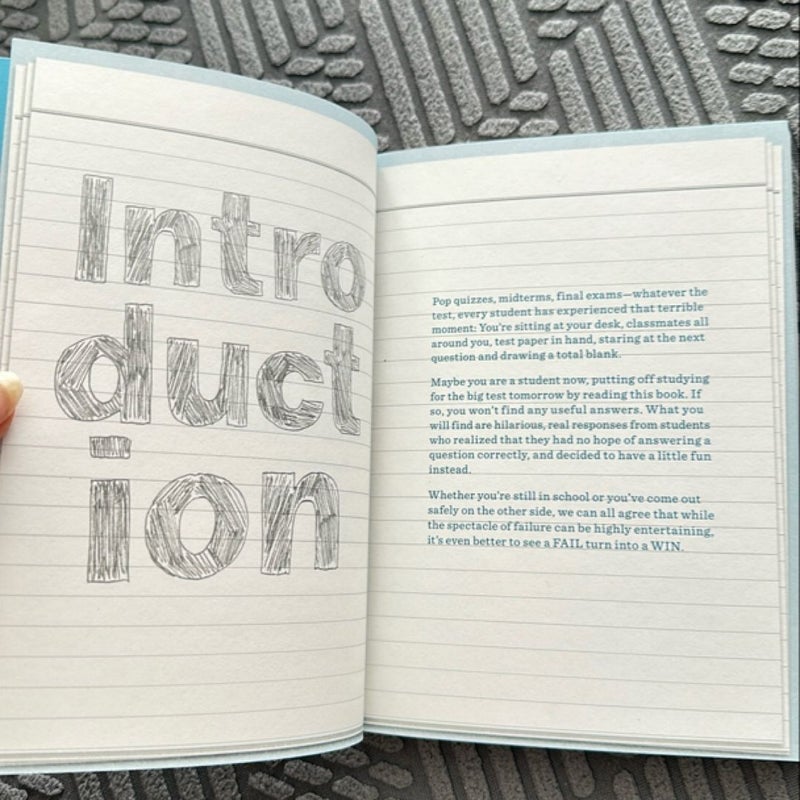 Intro
duct
ion
Pop quizzes, midterms, final exams—whatever the
test, every student has experienced that terrible
moment: You're sitting at your desk, classmates all
around you, test paper in hand, staring at the next
question and drawing a total blank.
Maybe you are a student now, putting off studying
for the big test tomorrow by reading this book. If
so, you won't find any useful answers. What you
will find are hilarious, real responses from students
who realized that they had no hope of answering a
question correctly, and decided to have a little fun
instead.
Whether you're still in school or you've come out
safely on the other side, we can all agree that while
the spectacle of failure can be highly entertaining,
it's even better to see a FAIL turn into a WIN.